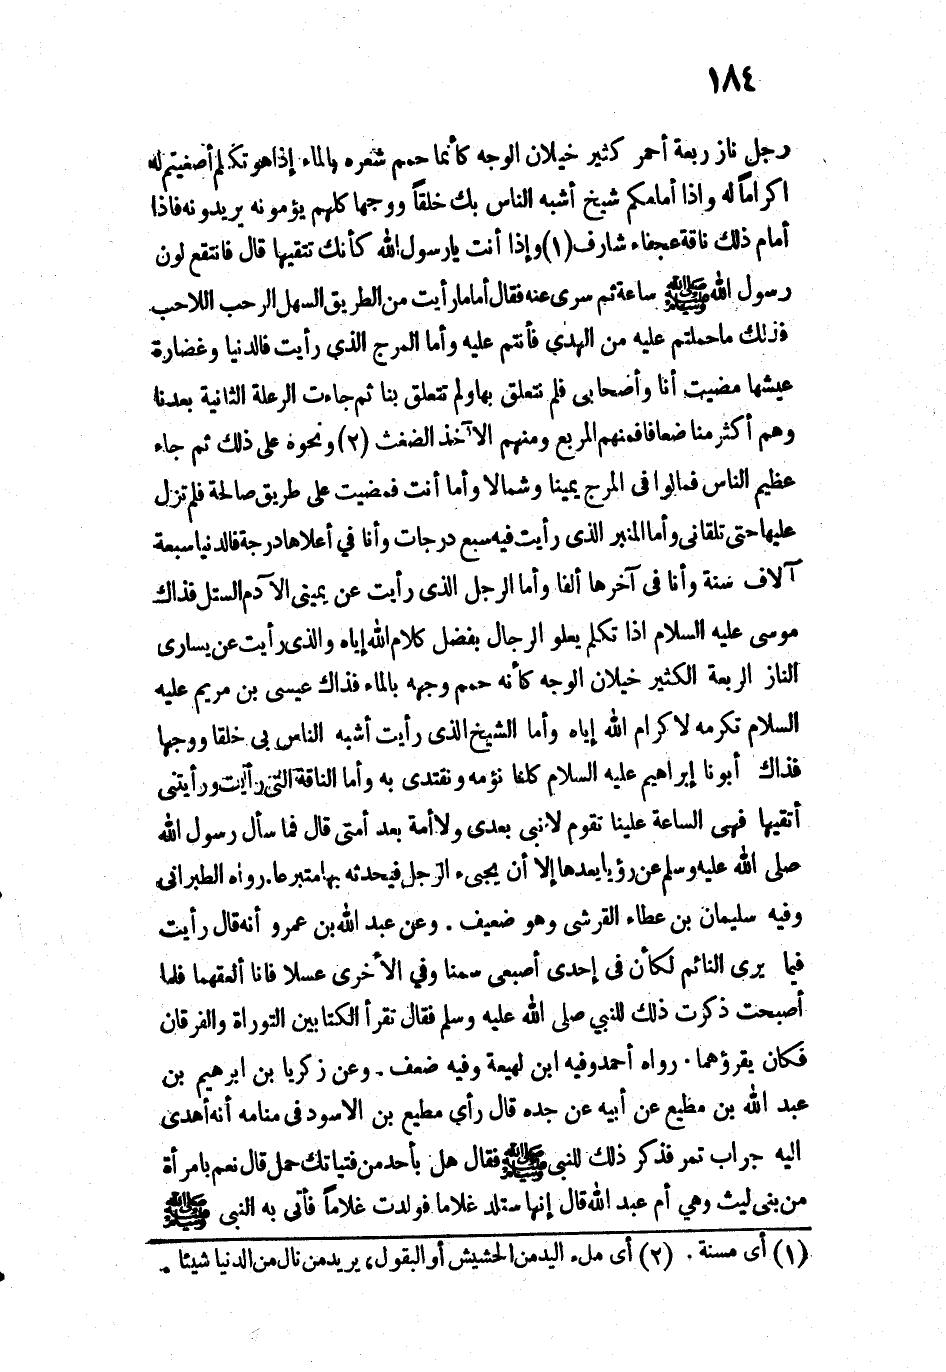 ١٨٤
رجل ناز ربعة أحمر كثير خيلان الوجه كأنما حمم شعره بالماء إذا هو تكلم أصغيتم له
اكراماً له واذا أمامكم شيخ أشبه الناس بك خلقاً ووجها كلهم يؤمونه يريدونه فاذا
أمام ذلك ناقة عجفاء شارف (١) وإذا أنت يارسول الله كأنك تتقيها قال فانتقع لون
رسول الله ﷺ ساعة ثم سرى عنه فقال أما ما رأيت من الطريق السهل الرحب اللاحب
فذلك ما حملتم عليه من الهدي فأنتم عليه وأما المرج الذي رأيت فالدنيا وغضارة
عيشها مضيت أنا وأصحابى فلم نتعلق بها ولم تتعلق بنا ثم جاءت الرعلة الثانية بعدنا
وهم أكثر منا ضعافا فمنهم المربع ومنهم الآخذ الضغث (٢) ونحوه على ذلك ثم جاء
عظيم الناس فمالوا فى المرج يمينا وشمالا وأما أنت فمضيت على طريق صالحة فلم تزل
عليها حتى تلقانى وأما المنبر الذى رأيت فيه سبع درجات وأنا في أعلاها درجة فالدنيا سبعة
آلاف سنة وأنا فى آخرها ألفا وأما الرجل الذى رأيت عن يمينى الآدم الستل فذاك
موسى عليه السلام اذا تكلم يعلو الرجال بفضل كلام الله إياه والذى رأيت عن يسارى
الناز الربعة الكثير خيلان الوجه كأنه حمم وجهه بالماء فذاك عيسى بن مريم عليه
السلام تكرمه لاكرام الله إياه وأما الشيخ الذى رأيت أشبه الناس بى خلقا ووجها
فذاك أبونا إبراهيم عليه السلام كلنا نؤمه ونقتدى به وأما الناقة التى رأيت ورأيتنى
أتقيها فهى الساعة علينا تقوم لانبى بعدى ولا أمة بعد أمتى قال فما سأل رسول الله
صلى الله عليه وسلم عن رؤيا بعدها إلا أن يجيىء الرجل فيحدثه بها متبرعا. رواه الطبرانى
وفيه سليمان بن عطاء القرشى وهو ضعيف . وعن عبد الله بن عمرو أنه قال رأيت
فيما يرى النائم لكأن فى إحدى أصبعى سمنا وفي الأخرى عسلا فانا ألعقهما فلما
أصبحت ذكرت ذلك للنبي صلى الله عليه وسلم فقال تقرأ الكتابين التوراة والفرقان
فكان يقرؤهما . رواه أحمد وفيه ابن لهيعة وفيه ضعف . وعن زكريا بن ابرهيم بن
عبد الله بن مطيع عن أبيه عن جده قال رأي مطيع بن الاسود فى منامه أنه أهدى
اليه جراب تمر فذكر ذلك للنبى ﷺ فقال هل بأحد من فتياتك حمل قال نعم بامرأة
من بنى ليث وهي أم عبد الله قال إنها ستلد غلاما فولدت غلاماً فأتى به النبى ﷺ
(١) أى مسنة . (٢) أى ملء اليد من الحشيش أو البقول ، يريد من نال من الدنيا شيئا .